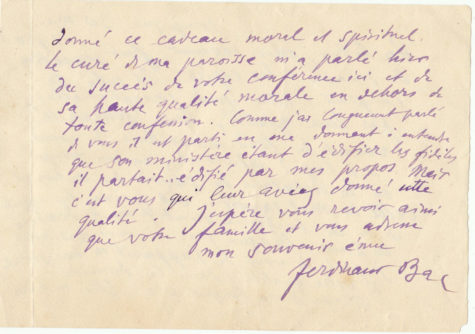 donné ce cadeau moral et spirituel.
Le curé de ma paroisse m'a parlé hier
du succès de votre conférence ici et de
sa haute qualité morale en dehors de
toute confession. Comme j'ai longuement parlé
de vous il est parti en me donnant à entendre
que son ministère étant d'édifier les fidèles
il partait.. édifié par mes propos. Mais
c'est vous qui leur aviez donné cette
qualité. J'espère vous revoir ainsi
que votre famille et vous adresse
mon souvenir ému
Ferdinand Bac